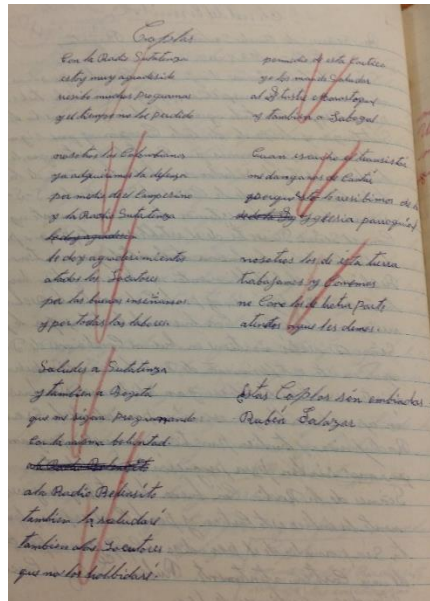 Coplas
Con la Radio Sutatenza
estoy muy agradesido
resibo muchos programas
y el tiempo no lo e perdido
nosotros los Colombianos
ya adquirimos la defensa
por medio del Campesino
y la Radio Sutatenza
le doy agradesi
le doy agradecimientos
a todos los Locutores
por las buenas enseñansas
y por todas las labores.
Saludes a Sutatenza
y tambien a Bogotá
que me sigan programando
con la misma boluntad.
a la Radio
a la Radio Belensito
tambien la saludaré
tambien a los Locutores
que no los holbidaré.
por medio de este Cantico
yo les mando Saludar
al Ilustre
y tambien a Sabogal
Cuan escucho el transistor
me dan ganas de Cantar
porque esto lo resibimos de la
yglesia parroquial
nosotros los de esta tierra
trabajamos y Comemos
no Como los de hotra parte
atenidos a que les demos.
Estas Coplas són embiadas
Rubén Salazar